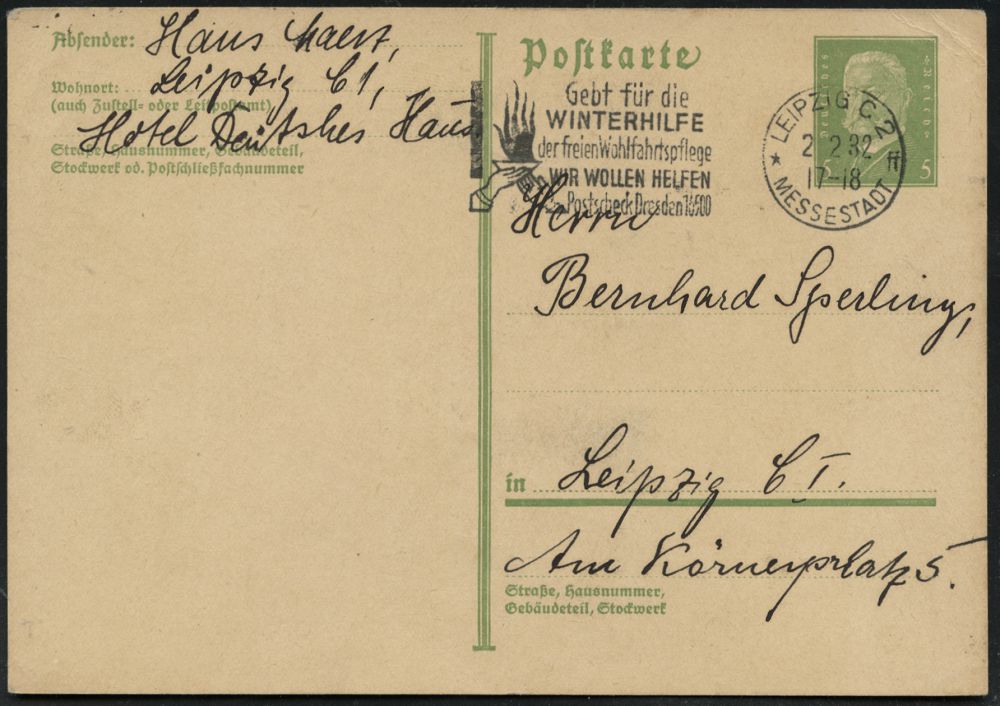 Absender: Hans
Leipzig C1,
Wohnort:
(auch Zustell- oder Leitpostamt)
Hotel Deutsches Haus
Straße, Hausnummer, Gebäudeteil,
Stockwerk od. Postschließfachnummer
Postkarte
Gebt für die
WINTERHILFE
der freien Wohlfahrtspflege
WIR WOLLEN HELFEN
Postscheck Dresden 16500
LEIPZIG C 2
2.2.32
17-18
* MESSESTADT
ff
5
Herrn
Bernhard Sperling,
in Leipzig C I.
Am Körnerplatz 5.
Straße, Hausnummer,
Gebäudeteil, Stockwerk